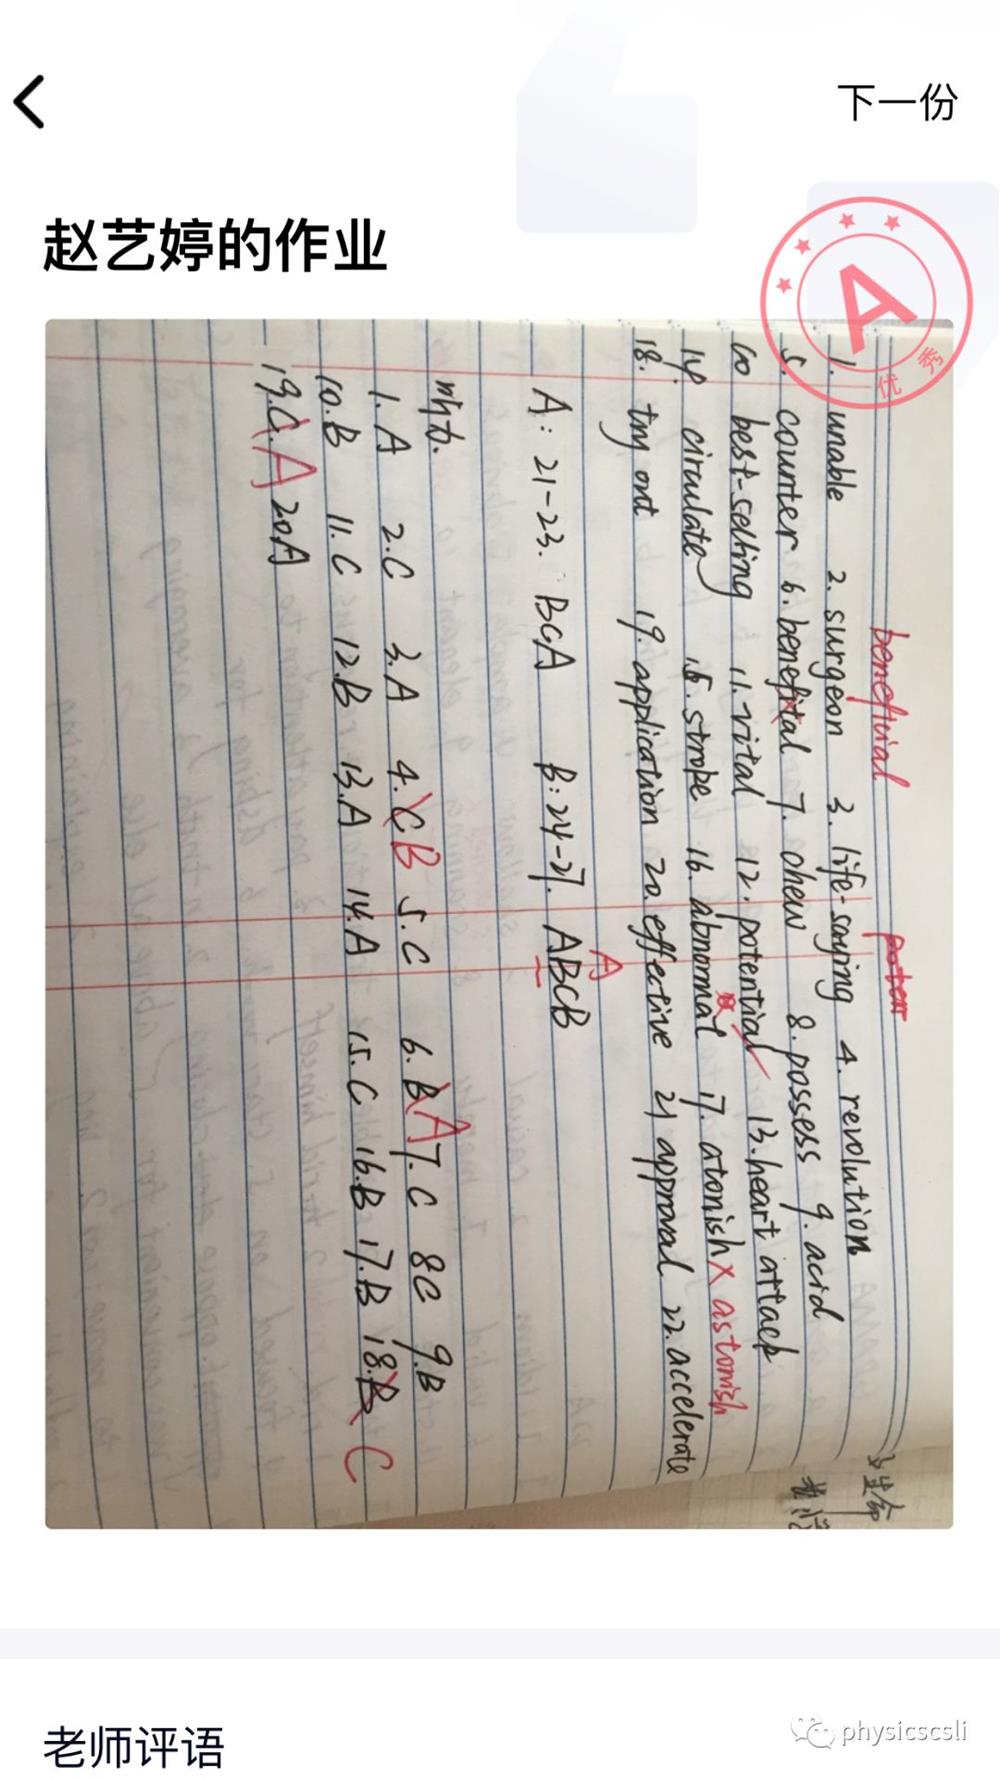 下一份
赵艺婷的作业
A
优秀
beneficial poten
1. unable 2. surgeon 3. life-saying 4. revolution
5. counter 6. benefital 7. chew 8. possess 9. acid
10 best-selling 11. vital 12. potential 13. heart attack
14. circulate 15. stroke 16. abnormal 17. atonish × astonish
18. try out 19. application 20. effective 21 approval 22. accelerate
A: 21-23. BCA B: 24-27. ABCB
A
1. A 2. C 3. A 4. C B 5. C 6. B A 7. C 8C 9. B
10. B 11. C 12. B 13. A 14. A 15. C 16. B 17. B 18. B C
19. C. A 20. A
老师评语
physicscsli